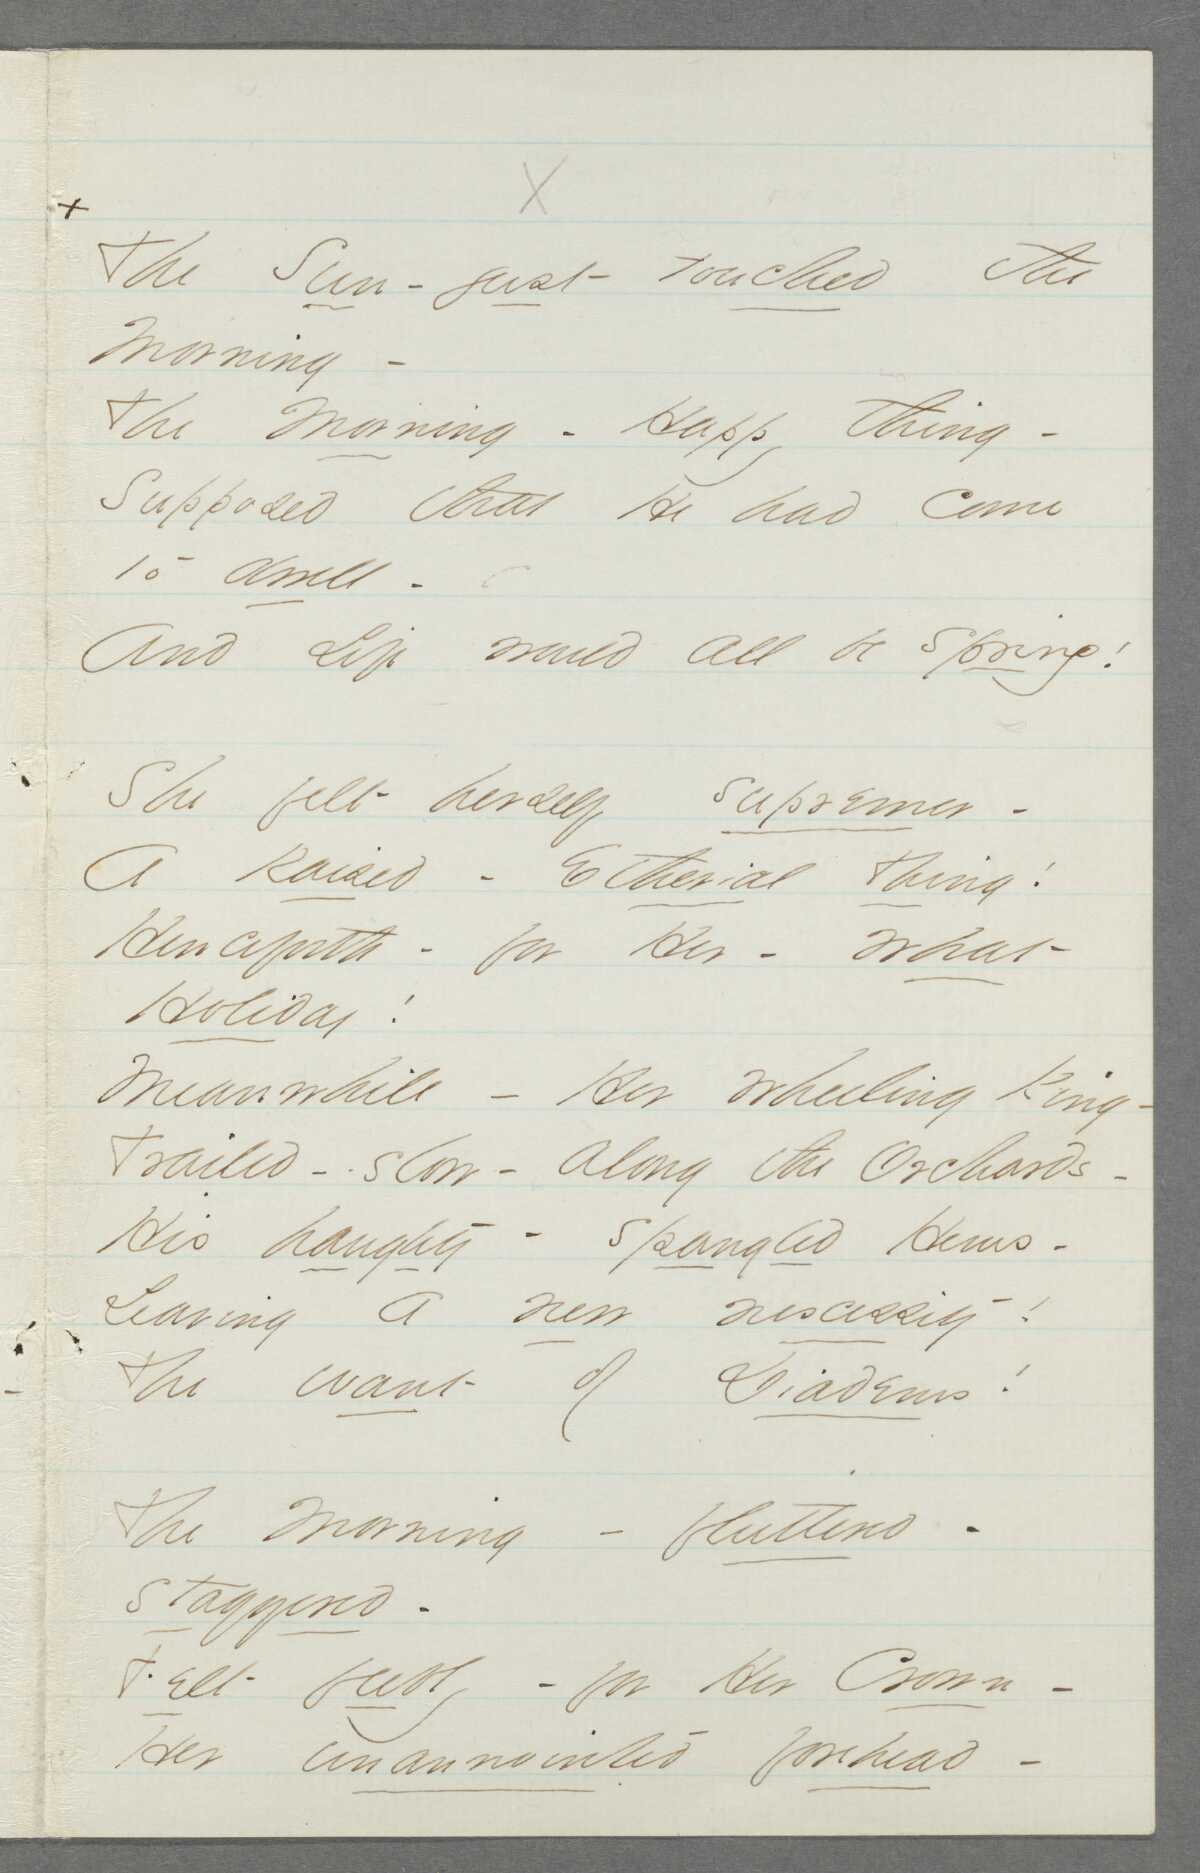 X
+
The Sun - just touched the
Morning -
The Morning - Happy thing -
Supposed that He had come
to dwell -
And Life would all be Spring!
She felt herself supremer -
A Raised - Etherial Thing!
Henceforth - for Her - What
Holiday!
Meanwhile - Her wheeling King -
Trailed - slow - along the Orchards -
His haughty - spangled Hems -
Leaving a new nescessity!
The want of Diadems!
The Morning - fluttered -
staggered -
Felt feebly - for Her Crown -
Her unannointed forehead -